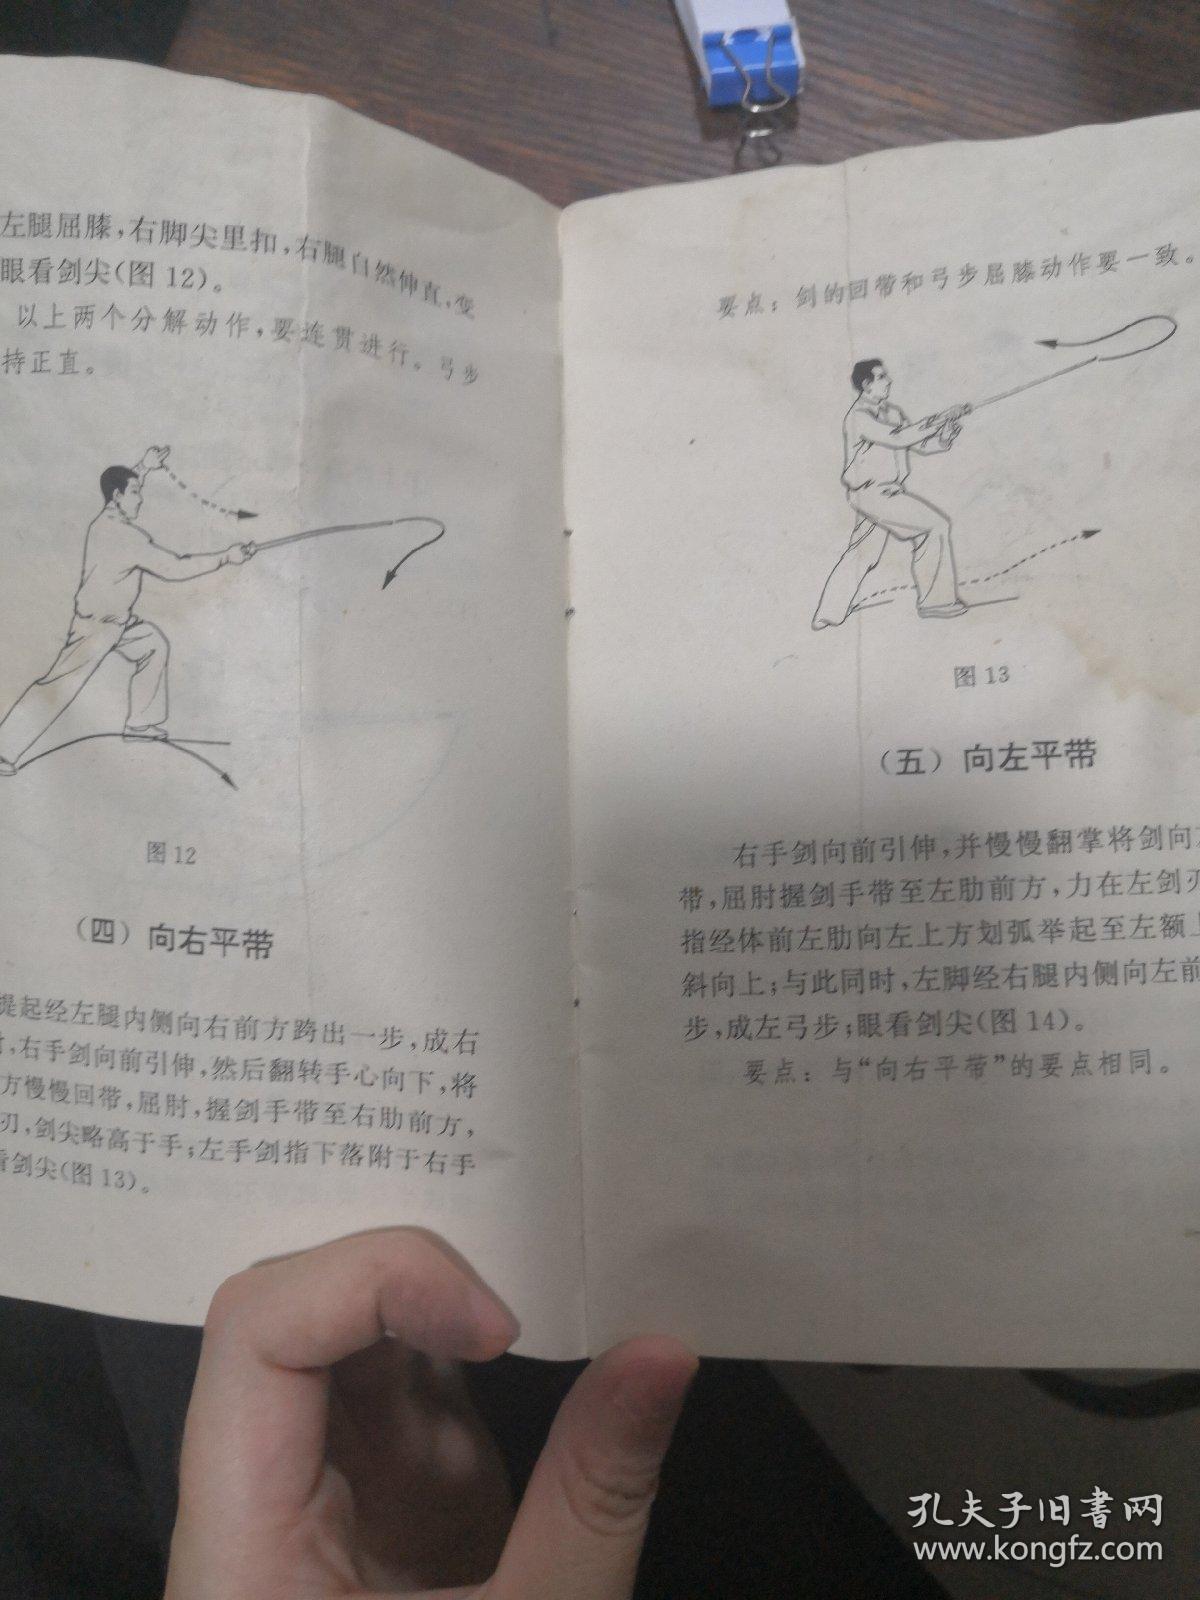 左腿屈膝，右脚尖里扣，右腿自然伸直，变
眼看剑尖（图12）。
以上两个分解动作，要连贯进行。弓步
持正直。
图12
（四）向右平带
提起经左腿内侧向右前方跨出一步，成右
，右手剑向前引伸，然后翻转手心向下，将
方慢慢回带，屈肘，握剑手带至右肋前方，
刃，剑尖略高于手；左手剑指下落附于右手
看剑尖（图13）。
要点：剑的回带和弓步屈膝动作要一致。
图13
（五）向左平带
右手剑向前引伸，并慢慢翻掌将剑向
带，屈肘握剑手带至左肋前方，力在左剑刃
指经体前左肋向左上方划弧举起至左额
斜向上；与此同时，左脚经右腿内侧向左前
步，成左弓步；眼看剑尖（图14）。
要点：与“向右平带”的要点相同。
孔夫子旧书网
www.kongfz.com